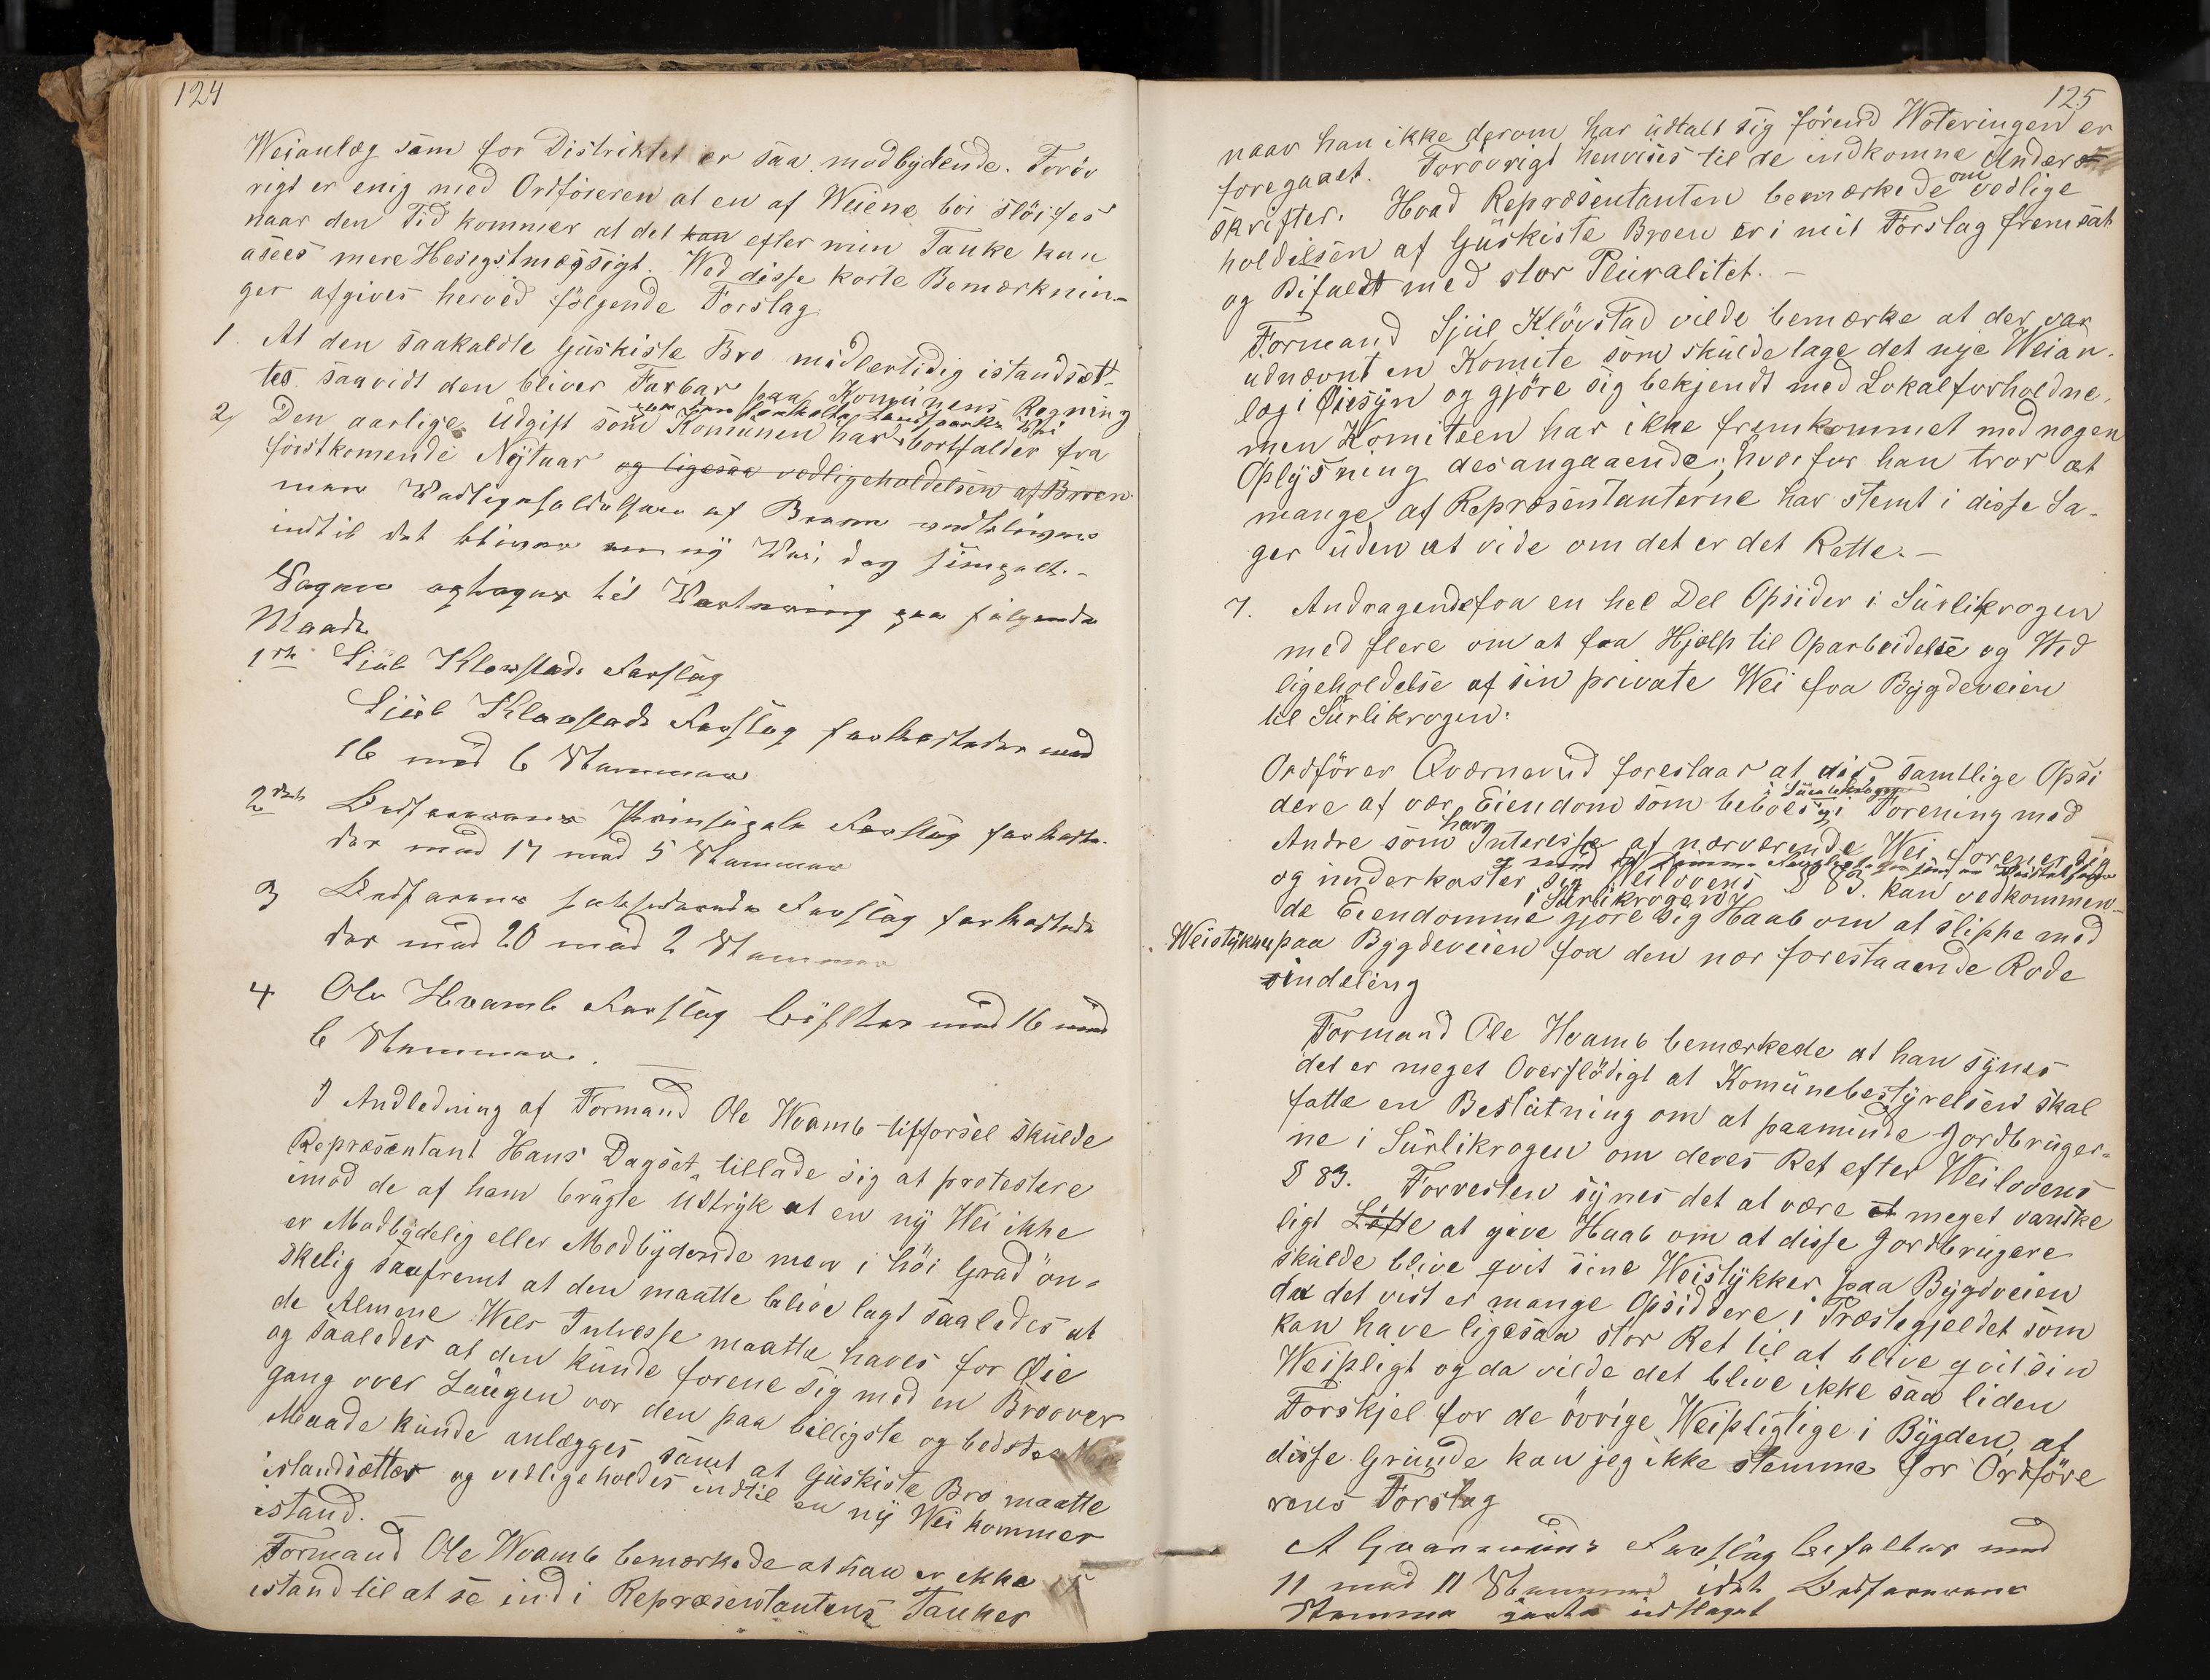 124
Weianlæg som for Distriktet er saa modbydende. Forøv
rigt er enig med Ordføreren at en af Weiene bør sløifes
naar den Tid kommer at det kan efter min Tanke kan
asees mere Hesigstmæssigt. Wed disse korte Bemærknin-
ger afgives herved følgende Forslag.
1. At den saakaldte Guskiste Bro midlertidig istandsæt-
tes saavidt den bliver Farbar paa Komunens Regning
2, Den aarlige Udgift som Komunen har bortfalder fra
førstkomende Nytaar og ligesaa vedligeholdelsen af Broen
men Vedligeholdelsen af Broen vedblives
indtil det bliver en ny Vei, dog simpelt.-
Sagen optages til Voterring paa følgende
Maade
1ste Sjul Klovstads Forslag
Sjul Klovstads Forslag forkastedes med
16 mod 6 Stemmer
2det Ordførerens Prinsipale Forslag forkaste-
des med 17 mod 5 Stemmer
3 Ordførerens subsidærende Forslag forkastede
des med 20 mod 2 Stemmer
4 Ole Hvambs Forslag bifaldtes med 16 mod
6 Stemmer.
I Andledning af Formand Ole Wvamb tilførsel skulde
Repræsentant Hans Dagset tillade sig at protestere
imod de af ham brugte Udtryk at en ny Wei ikke
er Modbydelig eller Modbydende men i høi Grad øn-
skelig saafremt at den maatte blive lagt saaledes at
de Almene Wels Intresse maatte haves for Øie
og saaledes at den kunde forene sig med en Broover
gang over Laugen vor den paa billigste og bedste
Maade kunde anlægges samt at Guskiste Bro maatte
istandsættes og vedligeholdes indtil en ny Wei kommer
istand.
Formand Ole Wvamb bemærkede at han er ikke
istand til at se ind i Repræsentantens Tanker
125
naar han ikke derom har udtalt sig førend Woteringen er
foregaaet. Forøvrigt henvises til de indkomne Under
skrifter. Hvad Repræsentanten bemærkede om vedlige
holdelsen af Guskiste Broen er i mit Forslag fremsat
og Bifaldt med stor Pluralitet. -
Formand Sjul Kløvstad vilde bemærke at der var
udnævnt en Komite som skulde tage det nye Weian-
læg i Øiesyn og gjøre sig bekjendt med Lokalforholdne,
men Komiteen har ikke fremkommet med nogen
Oplysning desangaaende; hvorfor han tror at
mange af Repræsentanterne har stemt i disse Sa-
ger uden at vide om det er det Rette. -
7. Andragende fra en hel Del Opsider i Surlikrogen
med flere om at faa Hjælp til Oparbeidelse og Wed
ligeholdelse af sin private Wei fra Bygdeveien
til Surlikrogen.
Ordfører Qværnerud foreslaar at disse samtlige Opsi
dere af vær Eiendom som beboes i Surlikrogen i Forening med
Andre som har Interesse af nærværende Wei forener sig
og underkaster sig Weilovens § 83. kan vedkommen-
de Eiendomme i Surlikrogen gjøre sig Haab om at slippe med
Weistykke paa Bygdeveien fra den nor forestaaende Rode
sindeling
Formand Ole Hvamb bemærkede at han synes
det er meget Overflødigt at Komunebestyrelsen skal
fatte en Beslutning om at paaminde Jordbruger-
ne i Surlikrogen om deres Ret efter Weilovens
§ 83. Forresten synes det at være et meget vanske
ligt Løfte at give Haab om at disse Jordbrugere
skulde blive qvit sine Weistykker paa Bygdveien
da det vist er mange Opsiddere i Præstegjeldet som
kan have ligesaa stor Ret til at blive qvit sin
Weipligt og da vilde det blive ikke saa liden
Forskjel for de øvrige Weipligtige i Bygden, af
disse Grunde kan jeg ikke stemme for Ordføre
rens Forslag
A Qværneruds Forslag bifaltes med
11 mod 11 Stemmer idet Ordførerens
Stemme gjorte udslaget